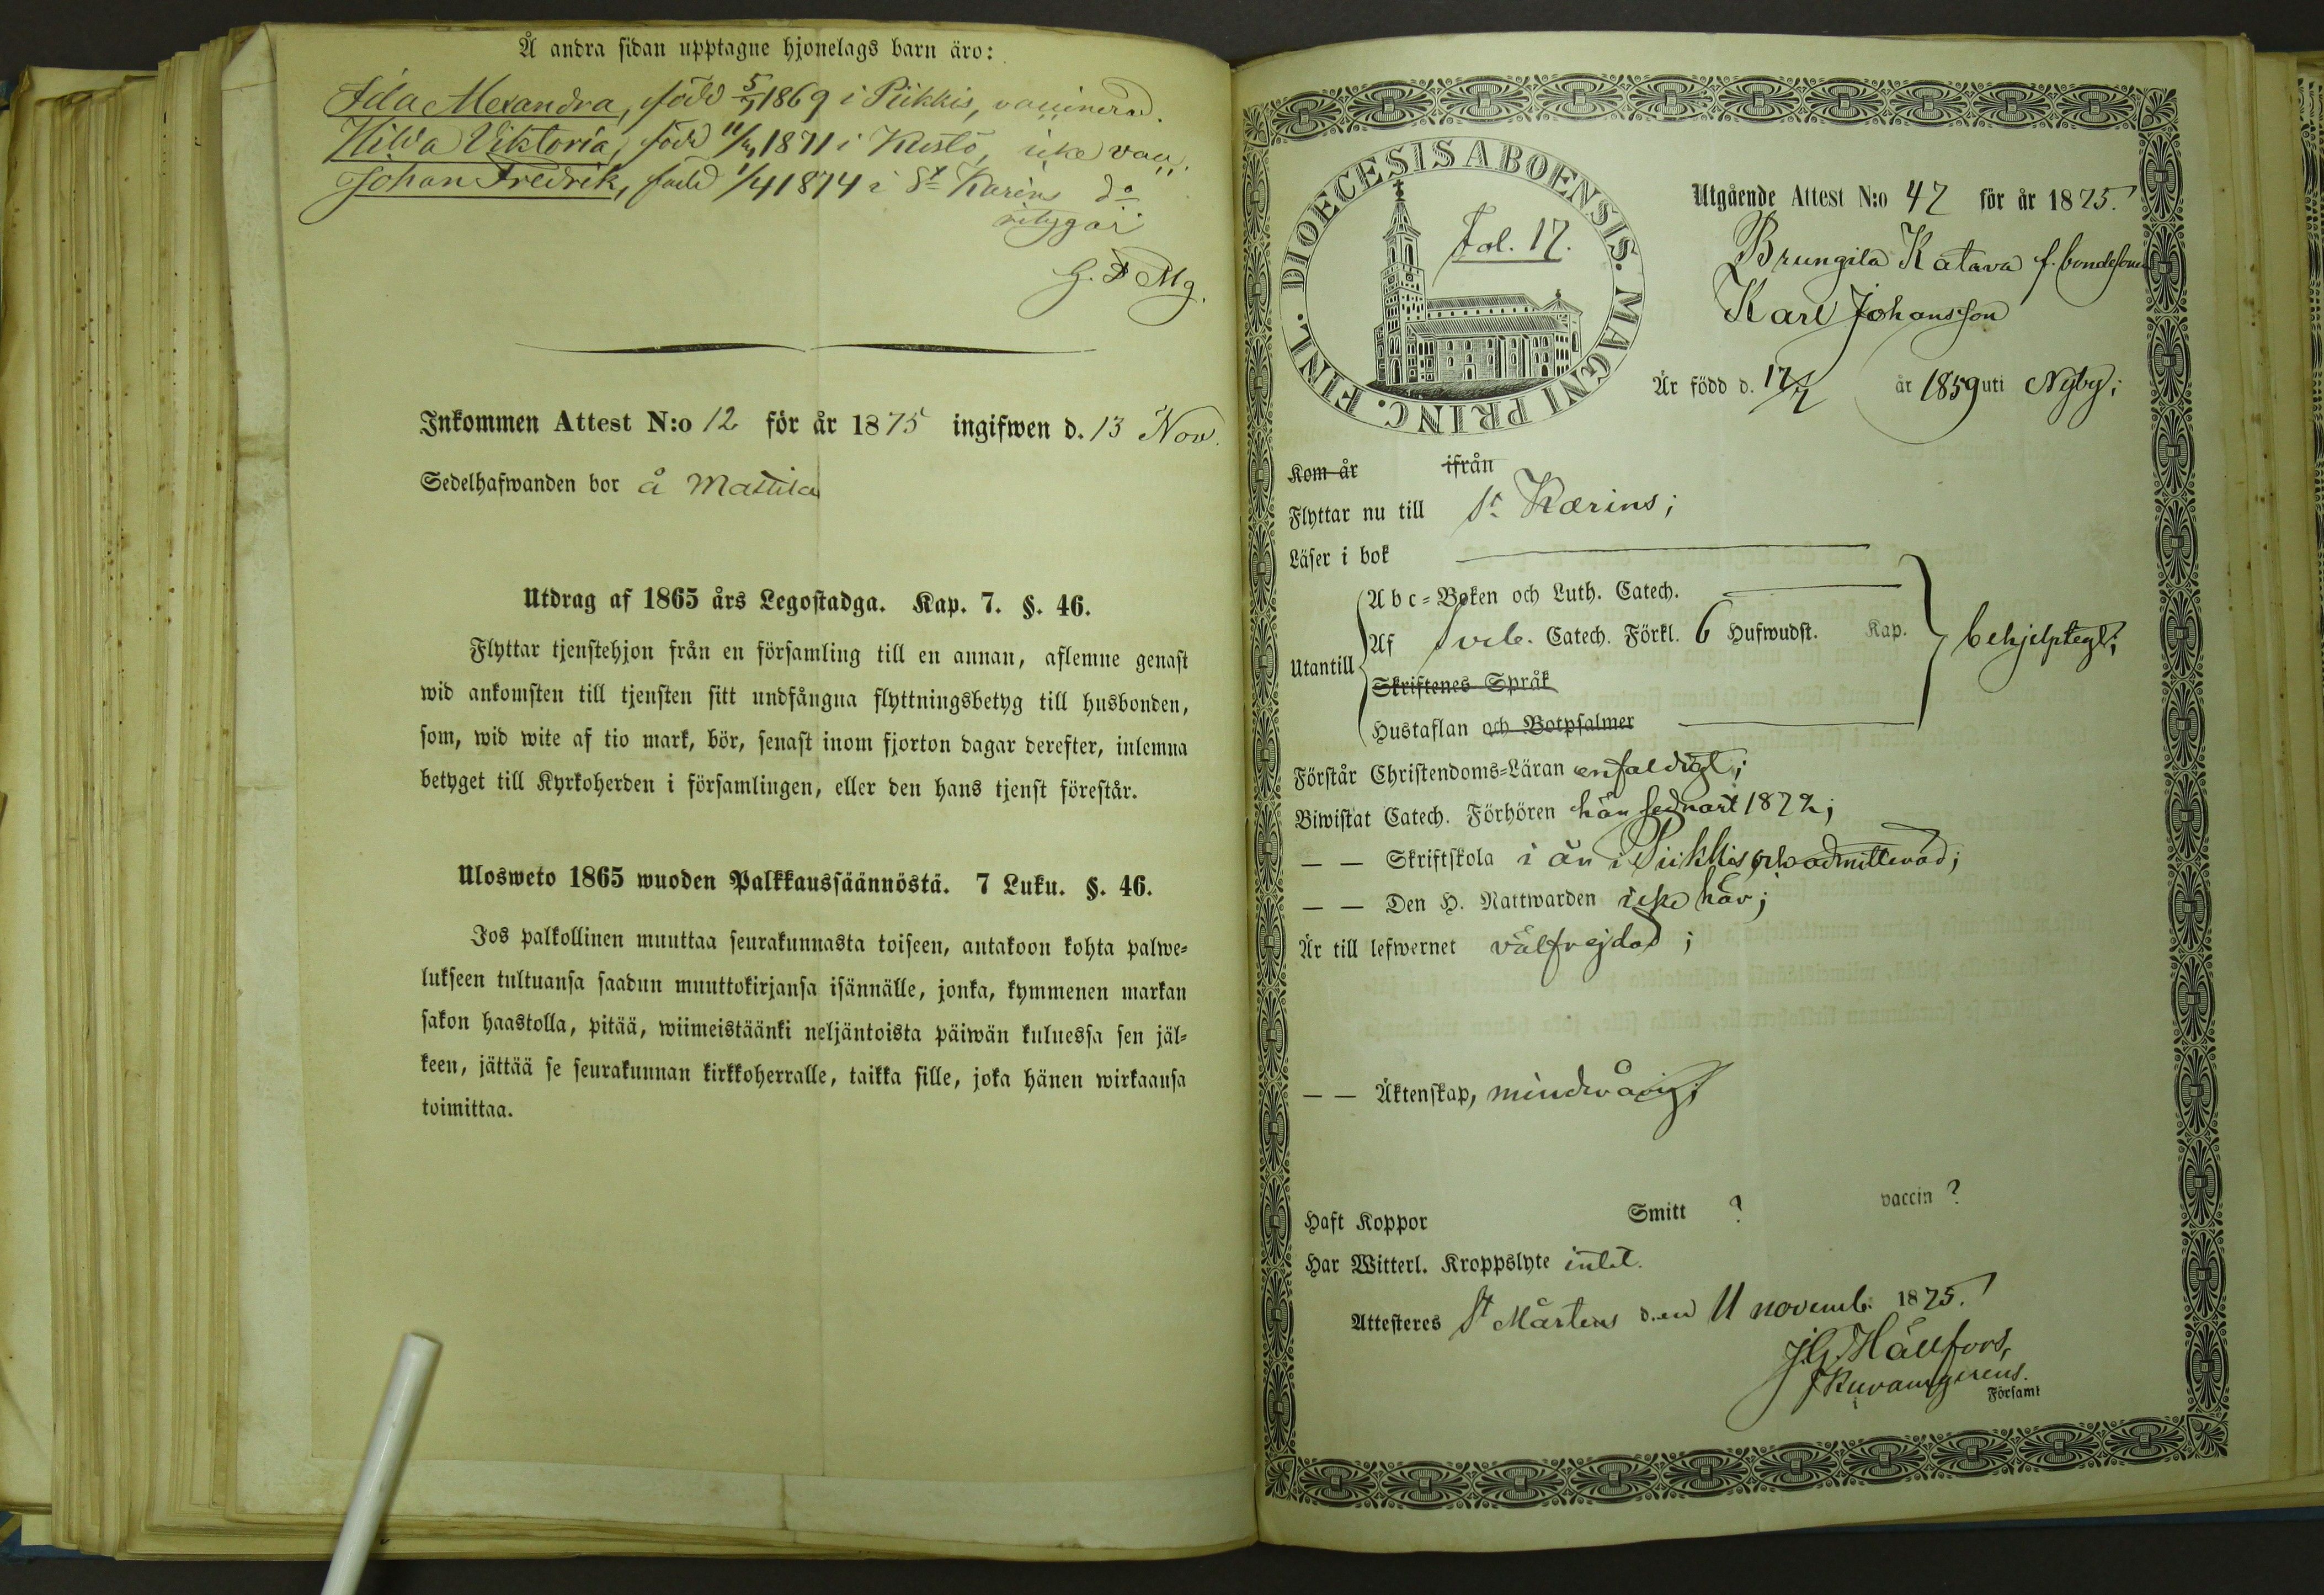 Å andra sidan upptagne hjonelags barn äro:
Ida Alexandra, född 5/7 1869 i Piikkis, vaccinerad.
Hilda Viktoria, född 1871 i Kustö, icke vacc.
Johan Fredrik, född 1/4 1874 i St Karins do
intygar
G. F. Mg.
Inkommen Attest N:o 12 för år 1875 ingifwen d. 13 Nov.
Sedelhafwanden bor å Mattila
Utdrag af 1865 års Legostadga. Kap. 7. §. 46.
Flyttar tjenstehjon från en församling till en annan, aflemne genast
wid ankomsten till tjensten sitt undfångna flyttningsbetyg till husbonden,
som, wid wite af tio mark, bör, senast inom fjorton dagar derefter, inlemna
betyget till Kyrkoherden i församlingen, eller den hans tjenst förestår.
Ulosweto 1865 wuoden Palkkaussäännöstä. 7 Luku. §. 46.
Jos palkollinen muuttaa seurakunnasta toiseen, antakoon kohta palwe-
lukseen tultuansa saadun muuttokirjansa isännälle, jonka, kymmenen markan
sakon haastolla, pitää, wiimeistäänki neljäntoista päiwän kuluessa sen jäl-
keen, jättää se seurakunnan kirkkoherralle, taikka sille, joka hänen wirkaansa
toimittaa.
DIOECESIS ABOENSIS. MAGNI PRINC. FINL.
Fol. 17.
Utgående Attest N:o 47 för år 1875.
Brungila Katava f. bondesonen
Karl Johansson
Är född d. 17/7 år 1859 uti Nyby;
Kom år ifrån
Flyttar nu till St Karins;
Läser i bok
Utantill
A b c-Boken och Luth. Catech.
Af Catech. Förkl. 6 Hufwudst. Kap.
behjelpligt;
Skriftenes Språk
Hustaflan och Botpsalmer
Förstår Christendoms-Läran enfaldigt;
Biwistat Catech. Förhören här sednast 1872;
— — Skriftskola i år i Piikkis och admitterad;
— — Den H. Nattwarden icke här;
Är till lefwernet välfrejdad;
— — Äktenskap, minderårig;
Haft Koppor Smitt ? vaccin ?
Har Witterl. Kroppslyte intet.
Attesteres St Mårtens den 11 novemb. 1875.
J. G. Hällfors,
Församl